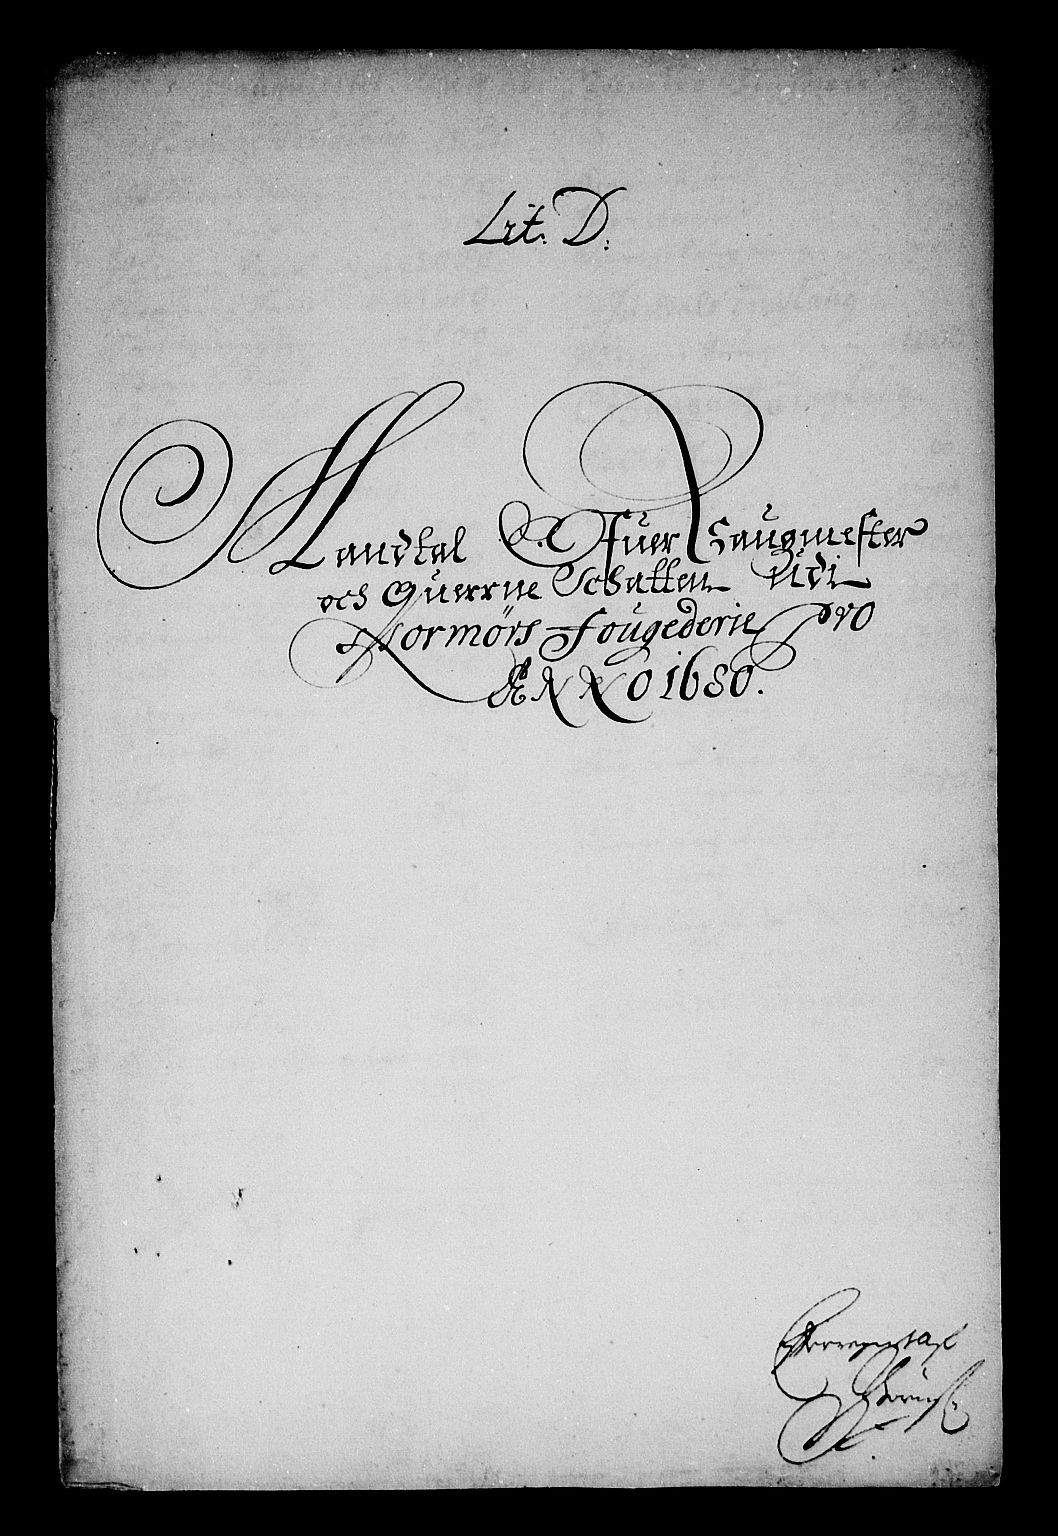 Lit. D.
Mandtal Ofuer Saugmester
och Querrne Schatten Udi
Normörs Fougederie Pro
ANNO 1680.